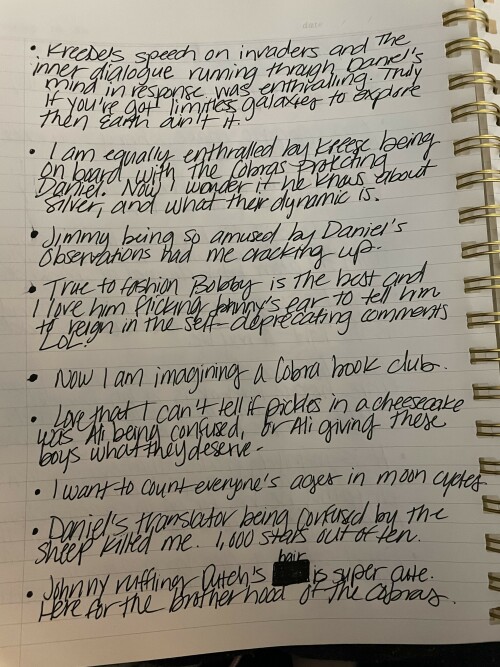 • Kreede's speech on invaders and The
inner dialogue running through Daniel's
mind in response was enthralling. Truly
if you're got limitless galaxies to explore
then Earth ain't it.
• I am equally enthralled by Kreese being
on board with the Cobras protecting
Daniel. Now I wonder if he knows about
Silver, and what their dynamic is.
• Jimmy being so amused by Daniel's
observations had me cracking up.
• True to fashion Bobby is the best and
I love him flicking Johnny's ear to tell him
to reign in the self-deprecating comments
LOL!
• Now I am imagining a Cobra book club.
• Love that I can't tell if pickles in a cheesecake
was Ali being confused, or Ali giving these
boys what they deserve.
• I want to count everyone's ages in moon cycles
• Daniel's translator being confused by the
sheep killed me. 1,000 stars out of ten.
hair
• Johnny ruffling Dutch's is super cute.
Here for the brotherhood of the Cobras.